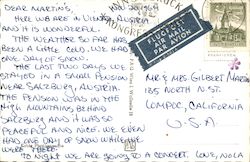 Dear Martin's,
Here we are in Vienna, Austria
and it is wonderful.
The weather so far has
been a little cold. We had
one day of snow.
The last two days we
stayed in a small pension
near Salzburg, Austria.
The pension was in the
mountains behind
Salzburg and it was so
peaceful and nice. We even
had one day of snow while we
were there.
To night we are going to a concert. Love,
FLUGPOST
AIR MAIL
PAR AVION
Mr & Mrs Gilbert Martin
185 North N St.
Lompoc, California
U.S.A